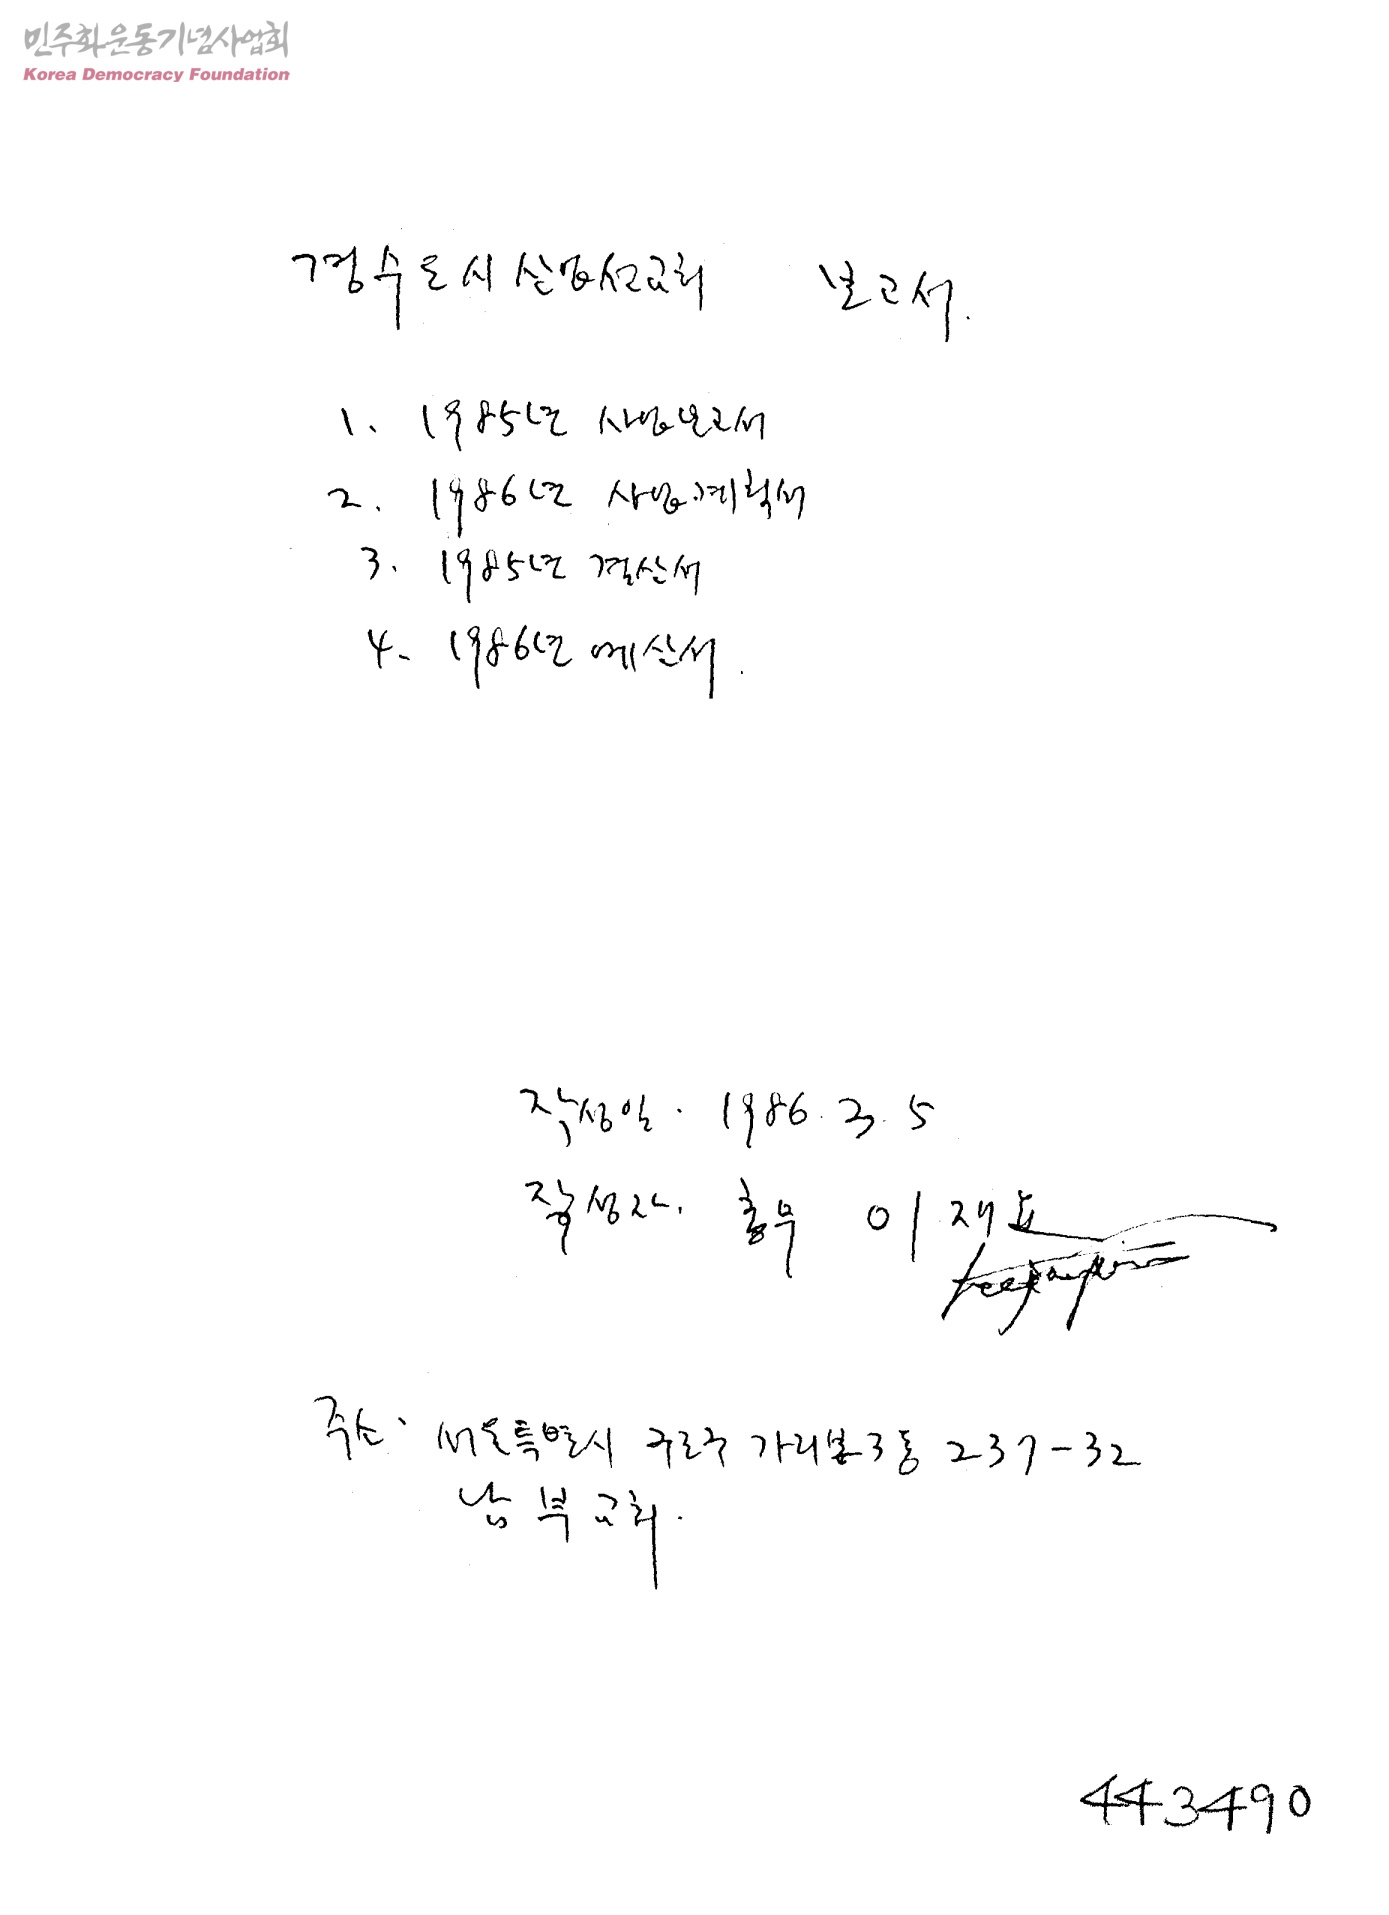 민주화운동기념사업회
Korea Democracy Foundation
경수도시산업선교회 보고서.
1. 1985년 사업보고서
2. 1986년 사업계획서
3. 1985년 결산서
4. 1986년 예산서.
작성일. 1986. 3. 5
작성자. 총무 이재
주소. 서울특별시 구로구 가리봉3동 237-32
남부교회.
443490